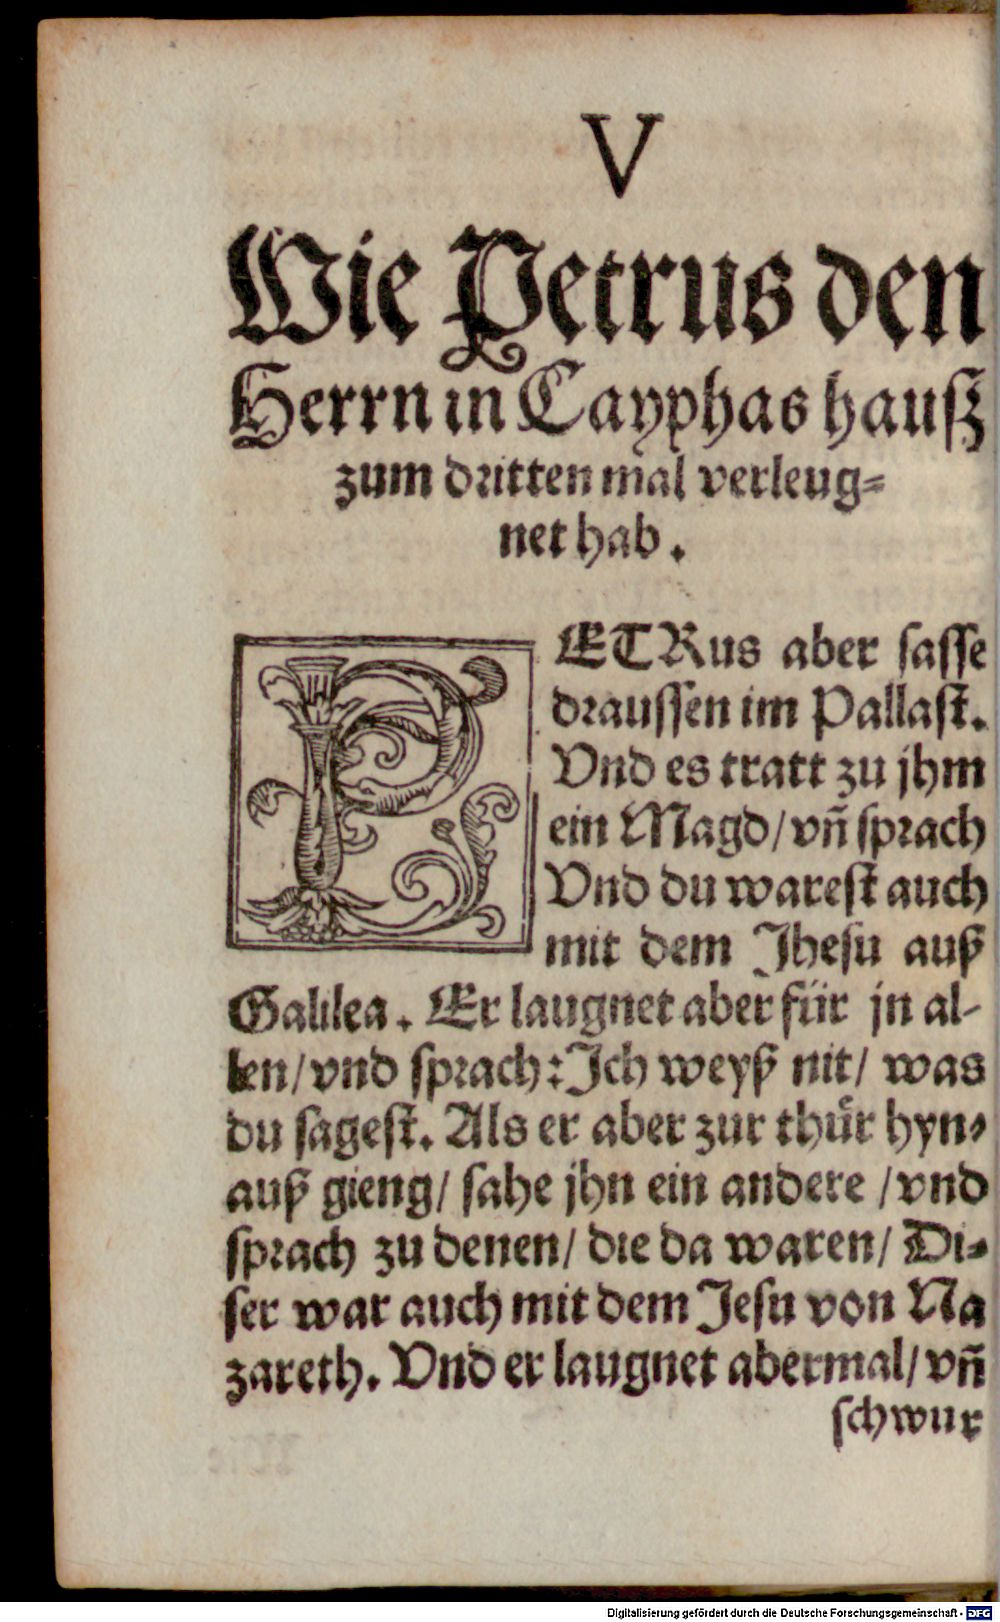 V
Wie Petrus den
Herrn in Cayphas hausz
zum dritten mal verleug⸗
net hab.
PETRus aber sasse
draussen im Pallast.
Vnd es tratt zu jhm
ein Magd/ vñ sprach
Vnd du warest auch
mit dem Jhesu auß
Galilea. Er laugnet aber für jn al⸗
len/ vnd sprach: Ich weyß nit/ was
du sagest. Als er aber zur thuͤr hyn⸗
auß gieng/ sahe jhn ein andere /vnd
sprach zu denen/ die da waren/ Di⸗
ser war auch mit dem Jesu von Na
zareth. Vnd er laugnet abermal/ vñ
schwur
Digitalisierung gefördert durch die Deutsche Forschungsgemeinschaft - DFG